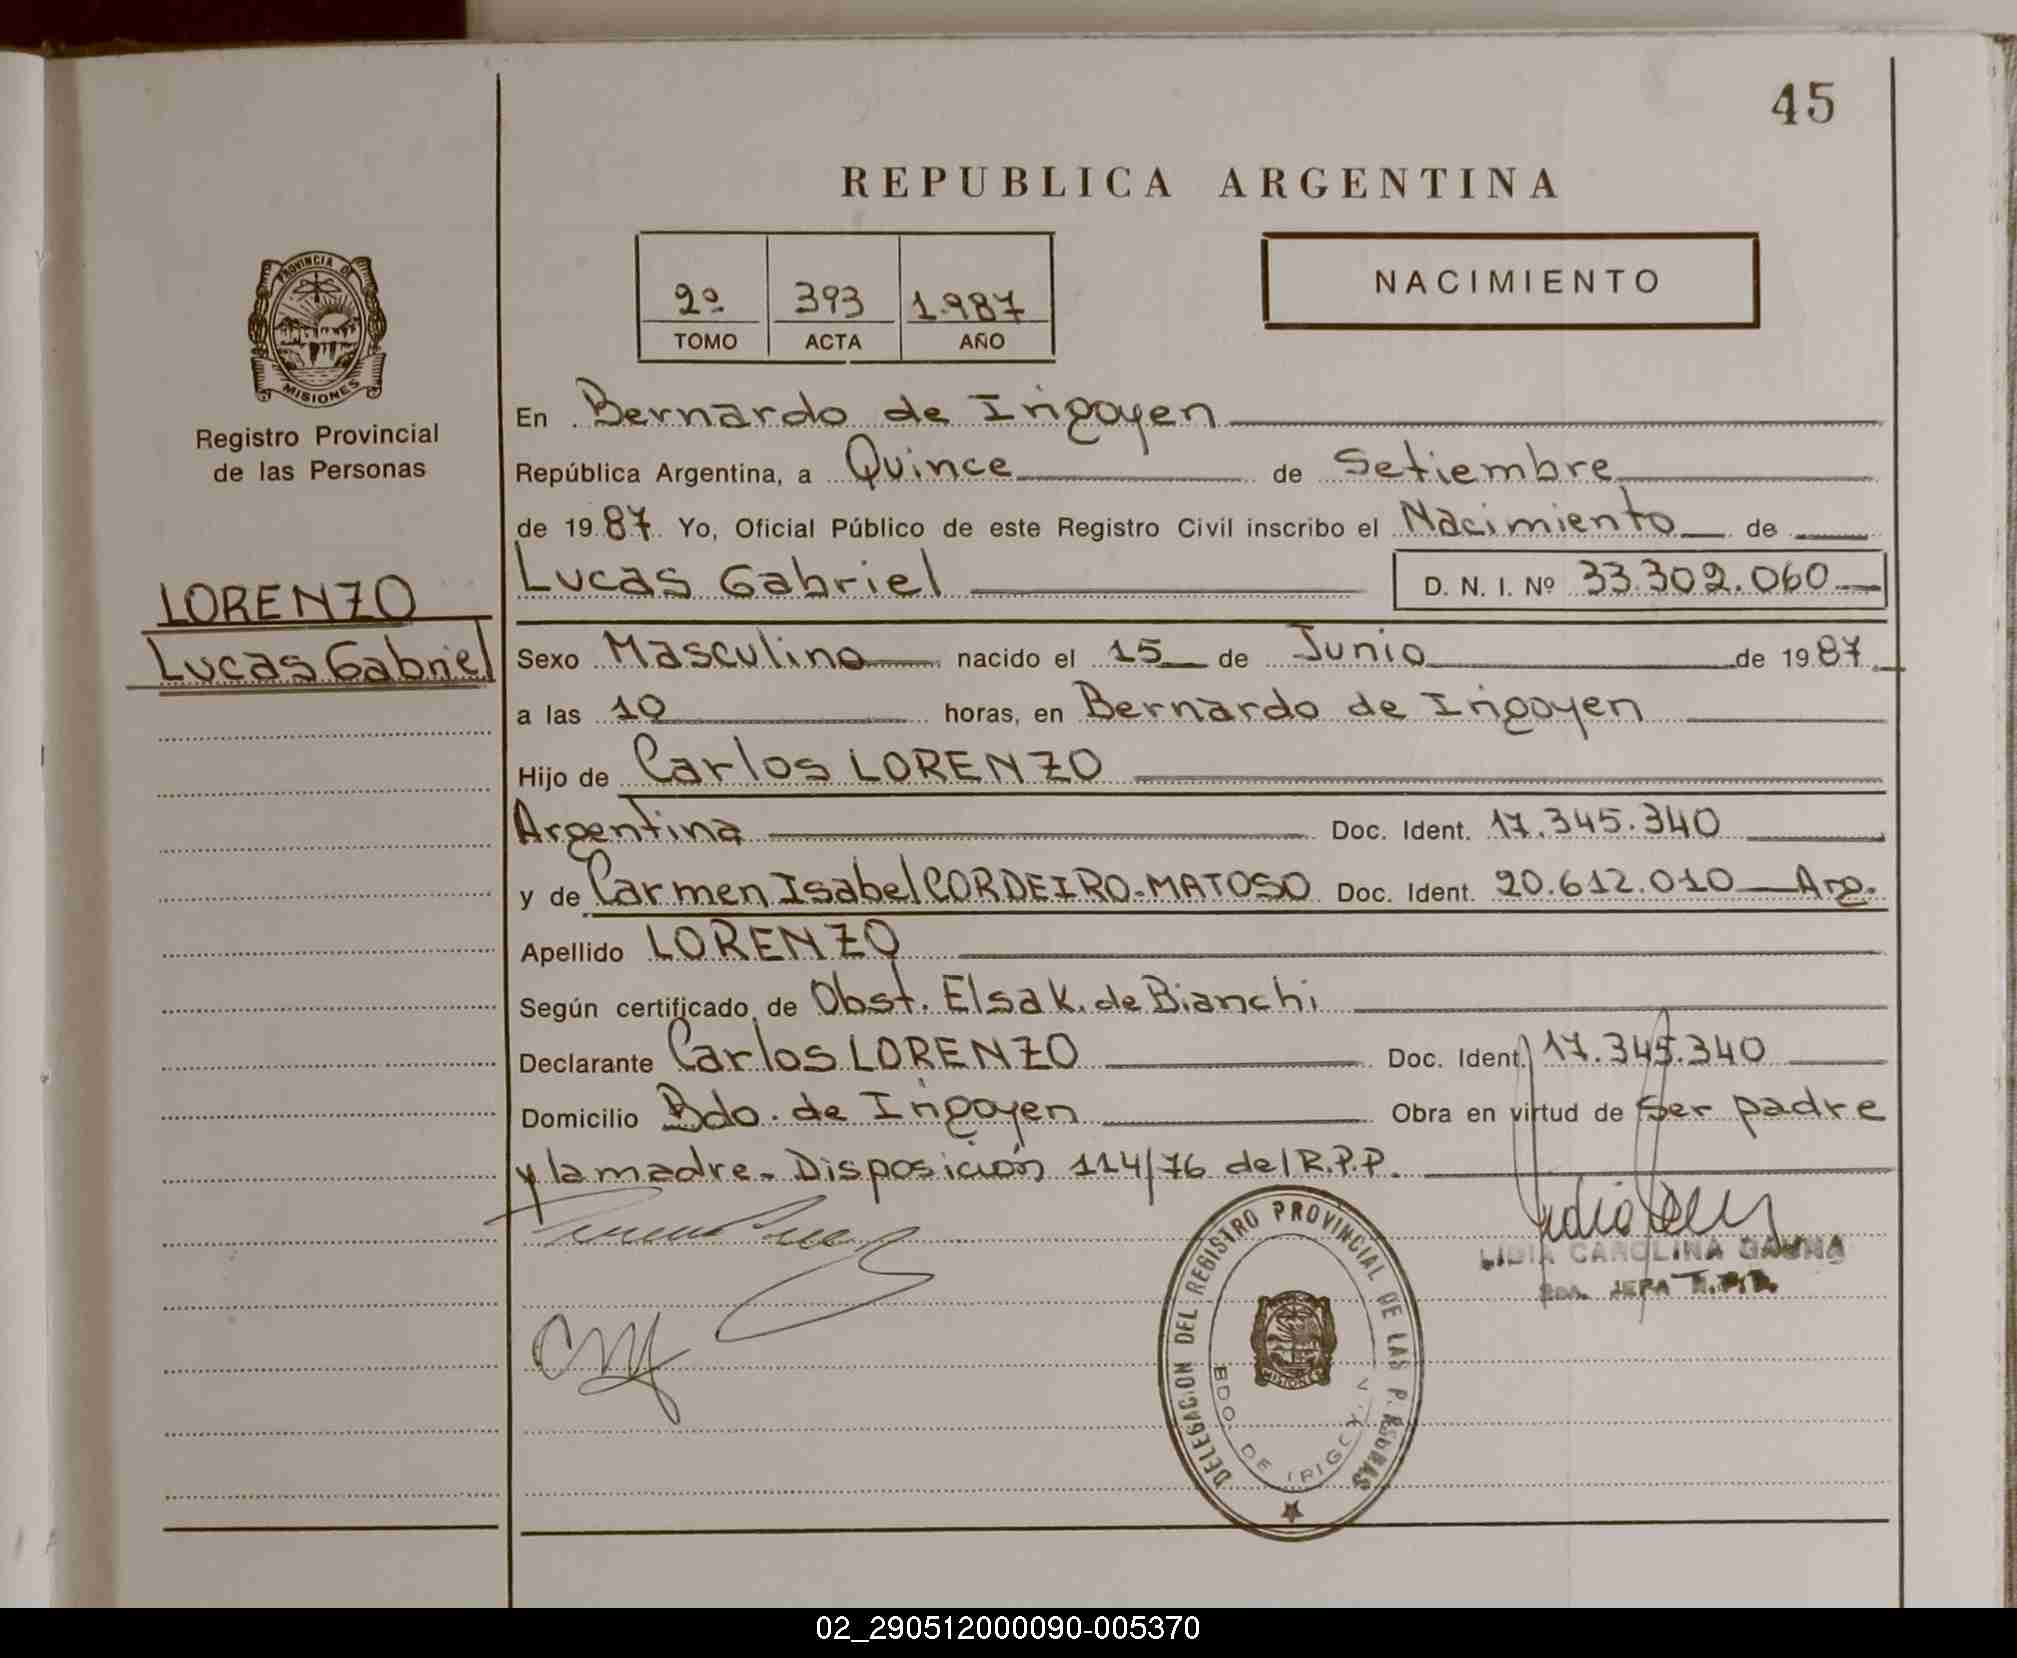 45
REPUBLICA ARGENTINA
PROVINCIA DE
MISIONES
Registro Provincial
de las Personas
2º 393 1.987
TOMO ACTA AÑO
NACIMIENTO
En Bernardo de Irigoyen
República Argentina, a Quince de Setiembre
de 1987 Yo, Oficial Público de este Registro Civil inscribo el Nacimiento de
Lucas Gabriel D. N. I. Nº 33.302.060
LORENZO
Lucas Gabriel
Sexo Masculino nacido el 15 de Junio de 1987
a las 10 horas, en Bernardo de Irigoyen
Hijo de Carlos LORENZO
Argentina Doc. Ident. 17.345.340
y de Carmen Isabel CORDEIRO-MATOSO Doc. Ident. 20.612.010 Arg.
Apellido LORENZO
Según certificado de Obst. Elsa K. de Bianchi
Declarante Carlos LORENZO Doc. Ident. 17.345.340
Domicilio Bdo. de Irigoyen Obra en virtud de Ser padre
y la madre- Disposición 114/76 del R.P.P.
LIDIA CAROLINA GAUNA
JEFA R.P.P.
DELEGACION DEL REGISTRO PROVINCIAL DE LAS PERSONAS
MISIONES
BDO. DE IRIGOYEN
02_290512000090-005370